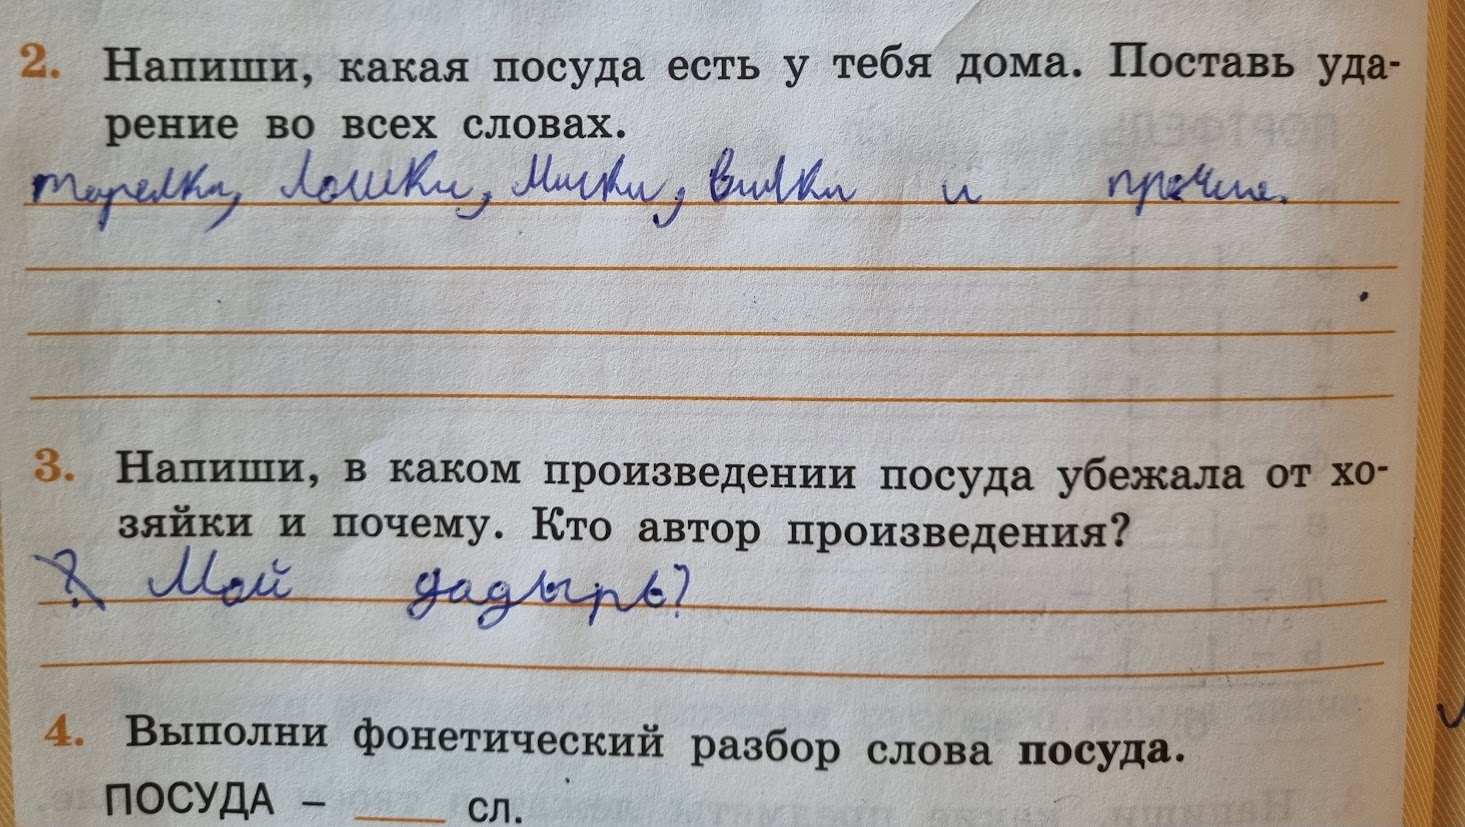 2. Напиши, какая посуда есть у тебя дома. Поставь уда-
рение во всех словах.
тарелки, Лошки, Миски, Вилки и прочие.
3. Напиши, в каком произведении посуда убежала от хо-
зяйки и почему. Кто автор произведения?
? Мой дадырь?
4. Выполни фонетический разбор слова посуда.
ПОСУДА – ___ сл.